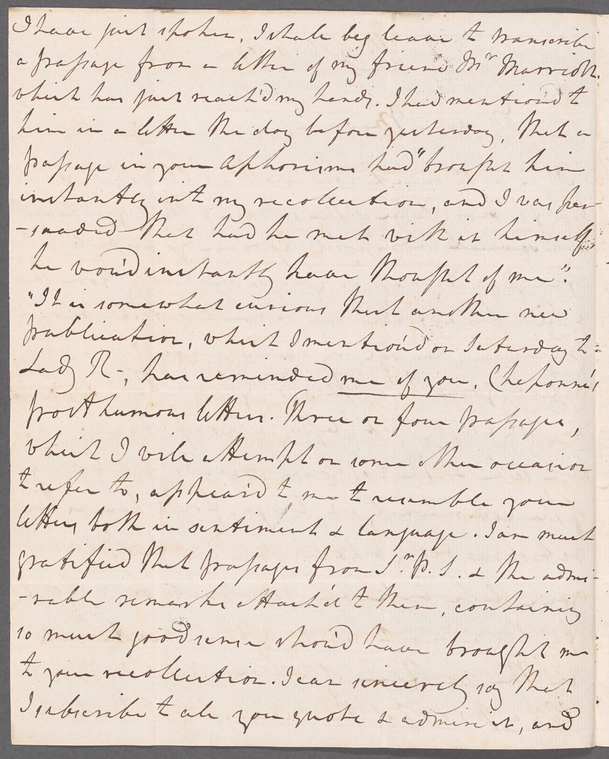 I have just spoken, I shall beg leave to transcribe
a passage from a letter of my friend Mr Marriott,
which has just reach'd my hands. I had mention'd to
him in a letter the day before yesterday, that a
passage in your Aphorisms had "brought him
instantly into my recollection, and I was per-
-suaded that had he met with it himself
he wou'd instantly have thought of me".
"It is somewhat curious that another new
publication, which I mention'd on Saturday to
Lady R-, has reminded me of you, Chapone's
posthumous letters. Three or four passages,
which I will attempt on some other occasion
to refer to, appear'd to me to resemble your
letters both in sentiment & language. I am much
gratified that passages from Sr P. S. & the admi-
-rable remarks attach'd to them, containing
so much good sense shou'd have brought me
to your recollection. I can sincerely say that
I subscribe to all you quote & admire it, and